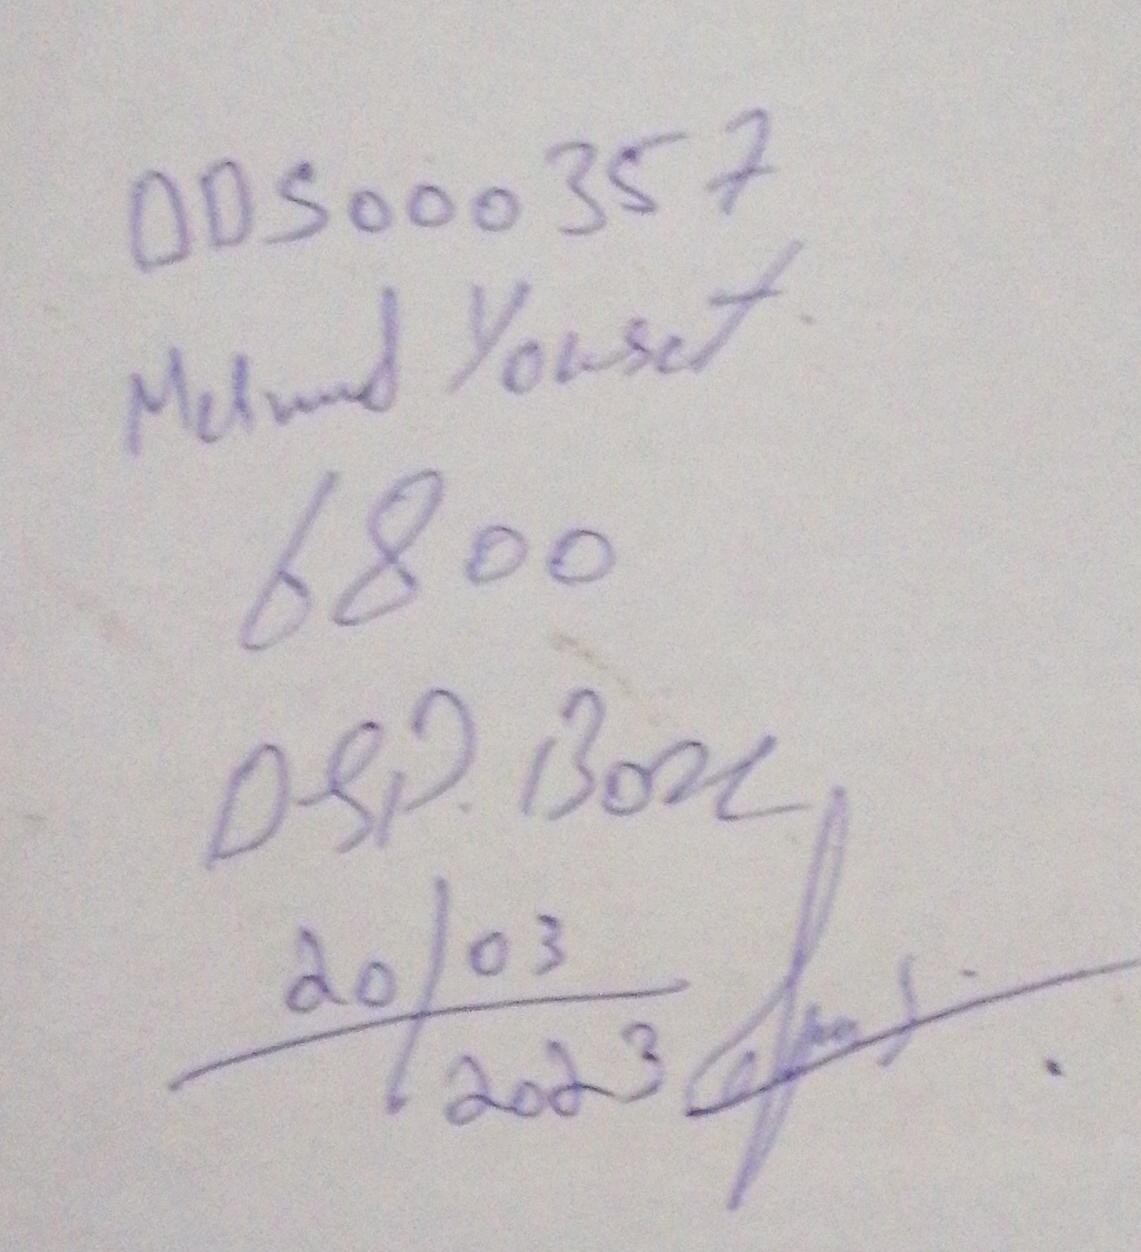 DDS000357
Mehmud Yousef
6800
DSP. Box
20/03
2023